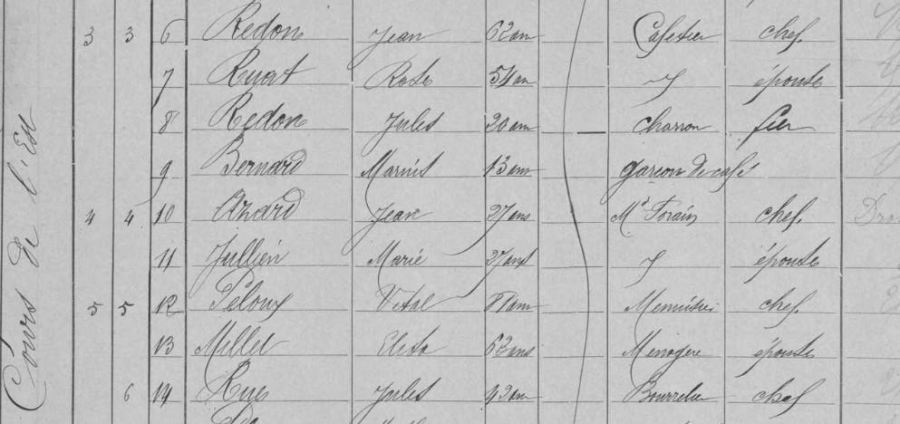 Cours de l'Eau
3 3 6 Redon Jean 62 ans Cafetier chef
7 Ruat Rose 54 ans épouse
8 Redon Jules 20 ans charron fils
9 Bernard Marius 13 ans garçon de café
4 4 10 Jean 27 ans Md Forain chef
11 Jullien Marie 27 ans épouse
5 5 12 Peloux Vital ans Menuisier chef
13 Millet 63 ans Menagere épouse
6 14 Hues Jules 43 ans Bourrelier chef